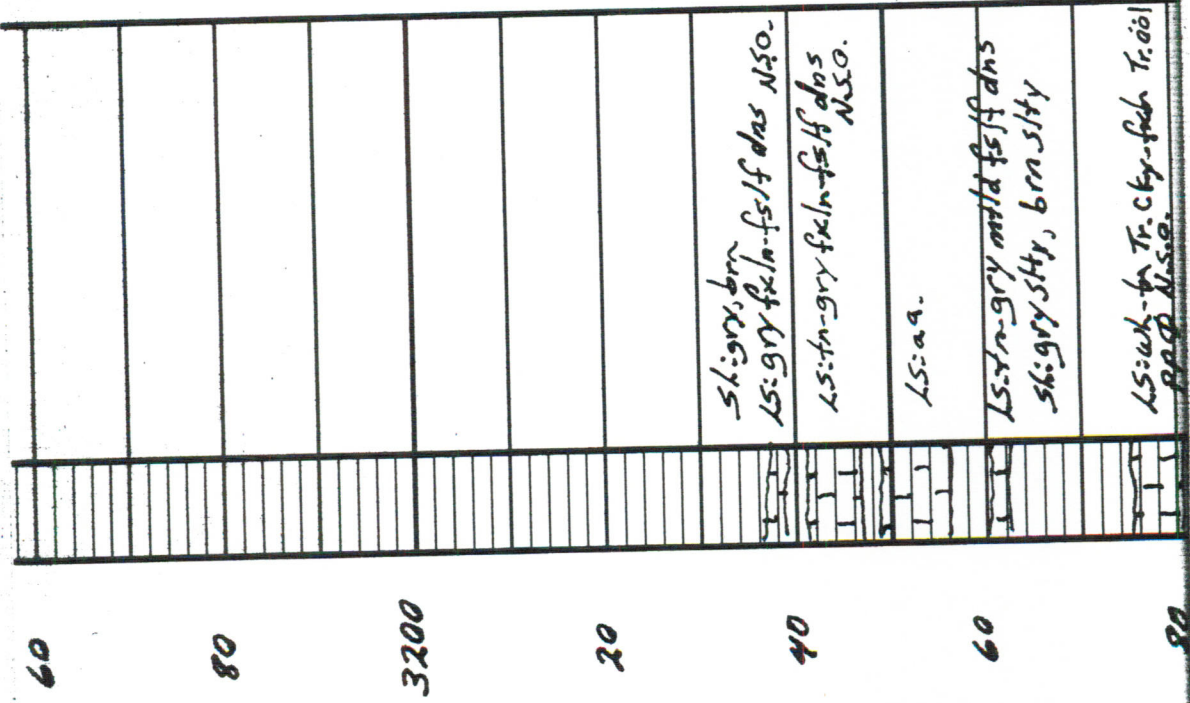 60
80
3200
20
40
60
80
Sh: gry, brn
LS: gry fxln-fslf dns N.S.O.
LS: tn-gry fxln-fslf dns
N.S.O.
LS: a.a.
LS: tn-gry mtld fslf dns
Sh: gry slty, brn slty
LS: wh-tn Tr. Cky-fxln Tr. ool
N.S.O.